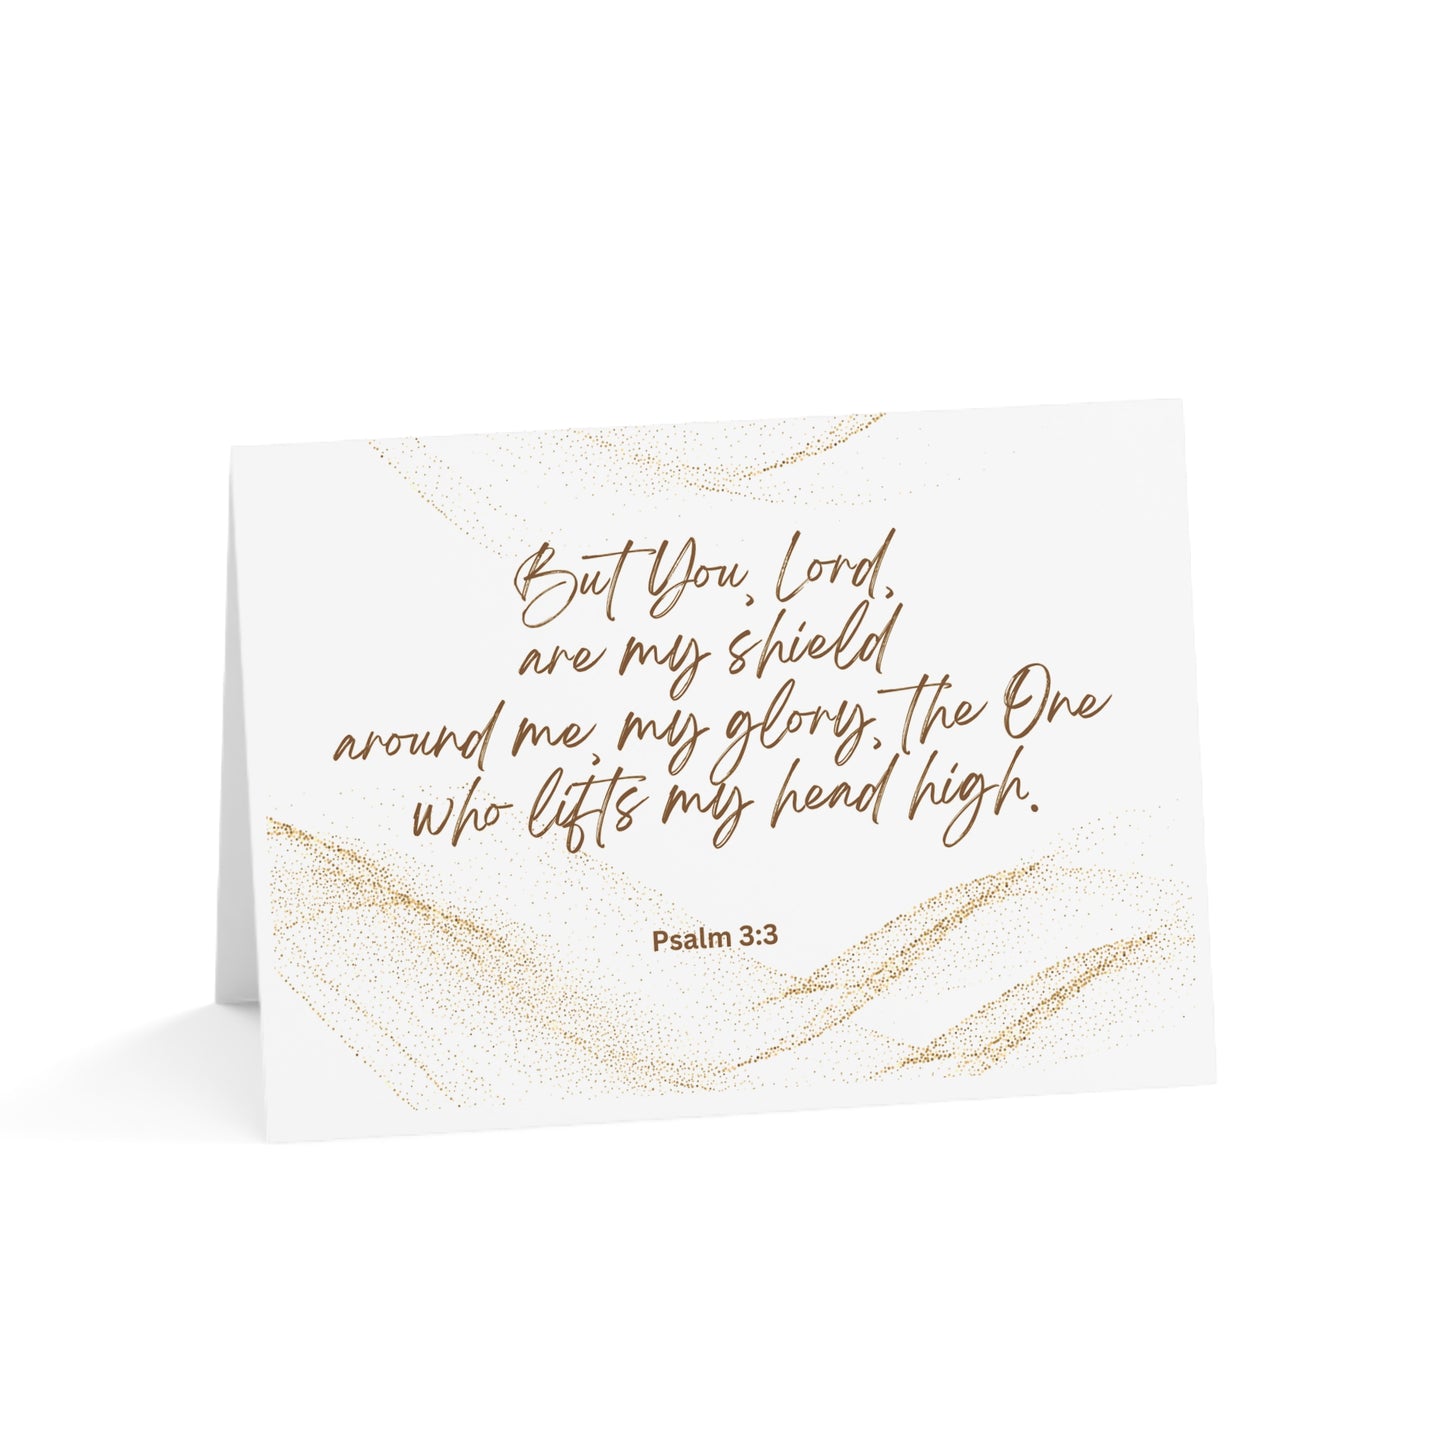 But You, Lord,
are my shield
around me, my glory, the One
who lifts my head high.
Psalm 3:3